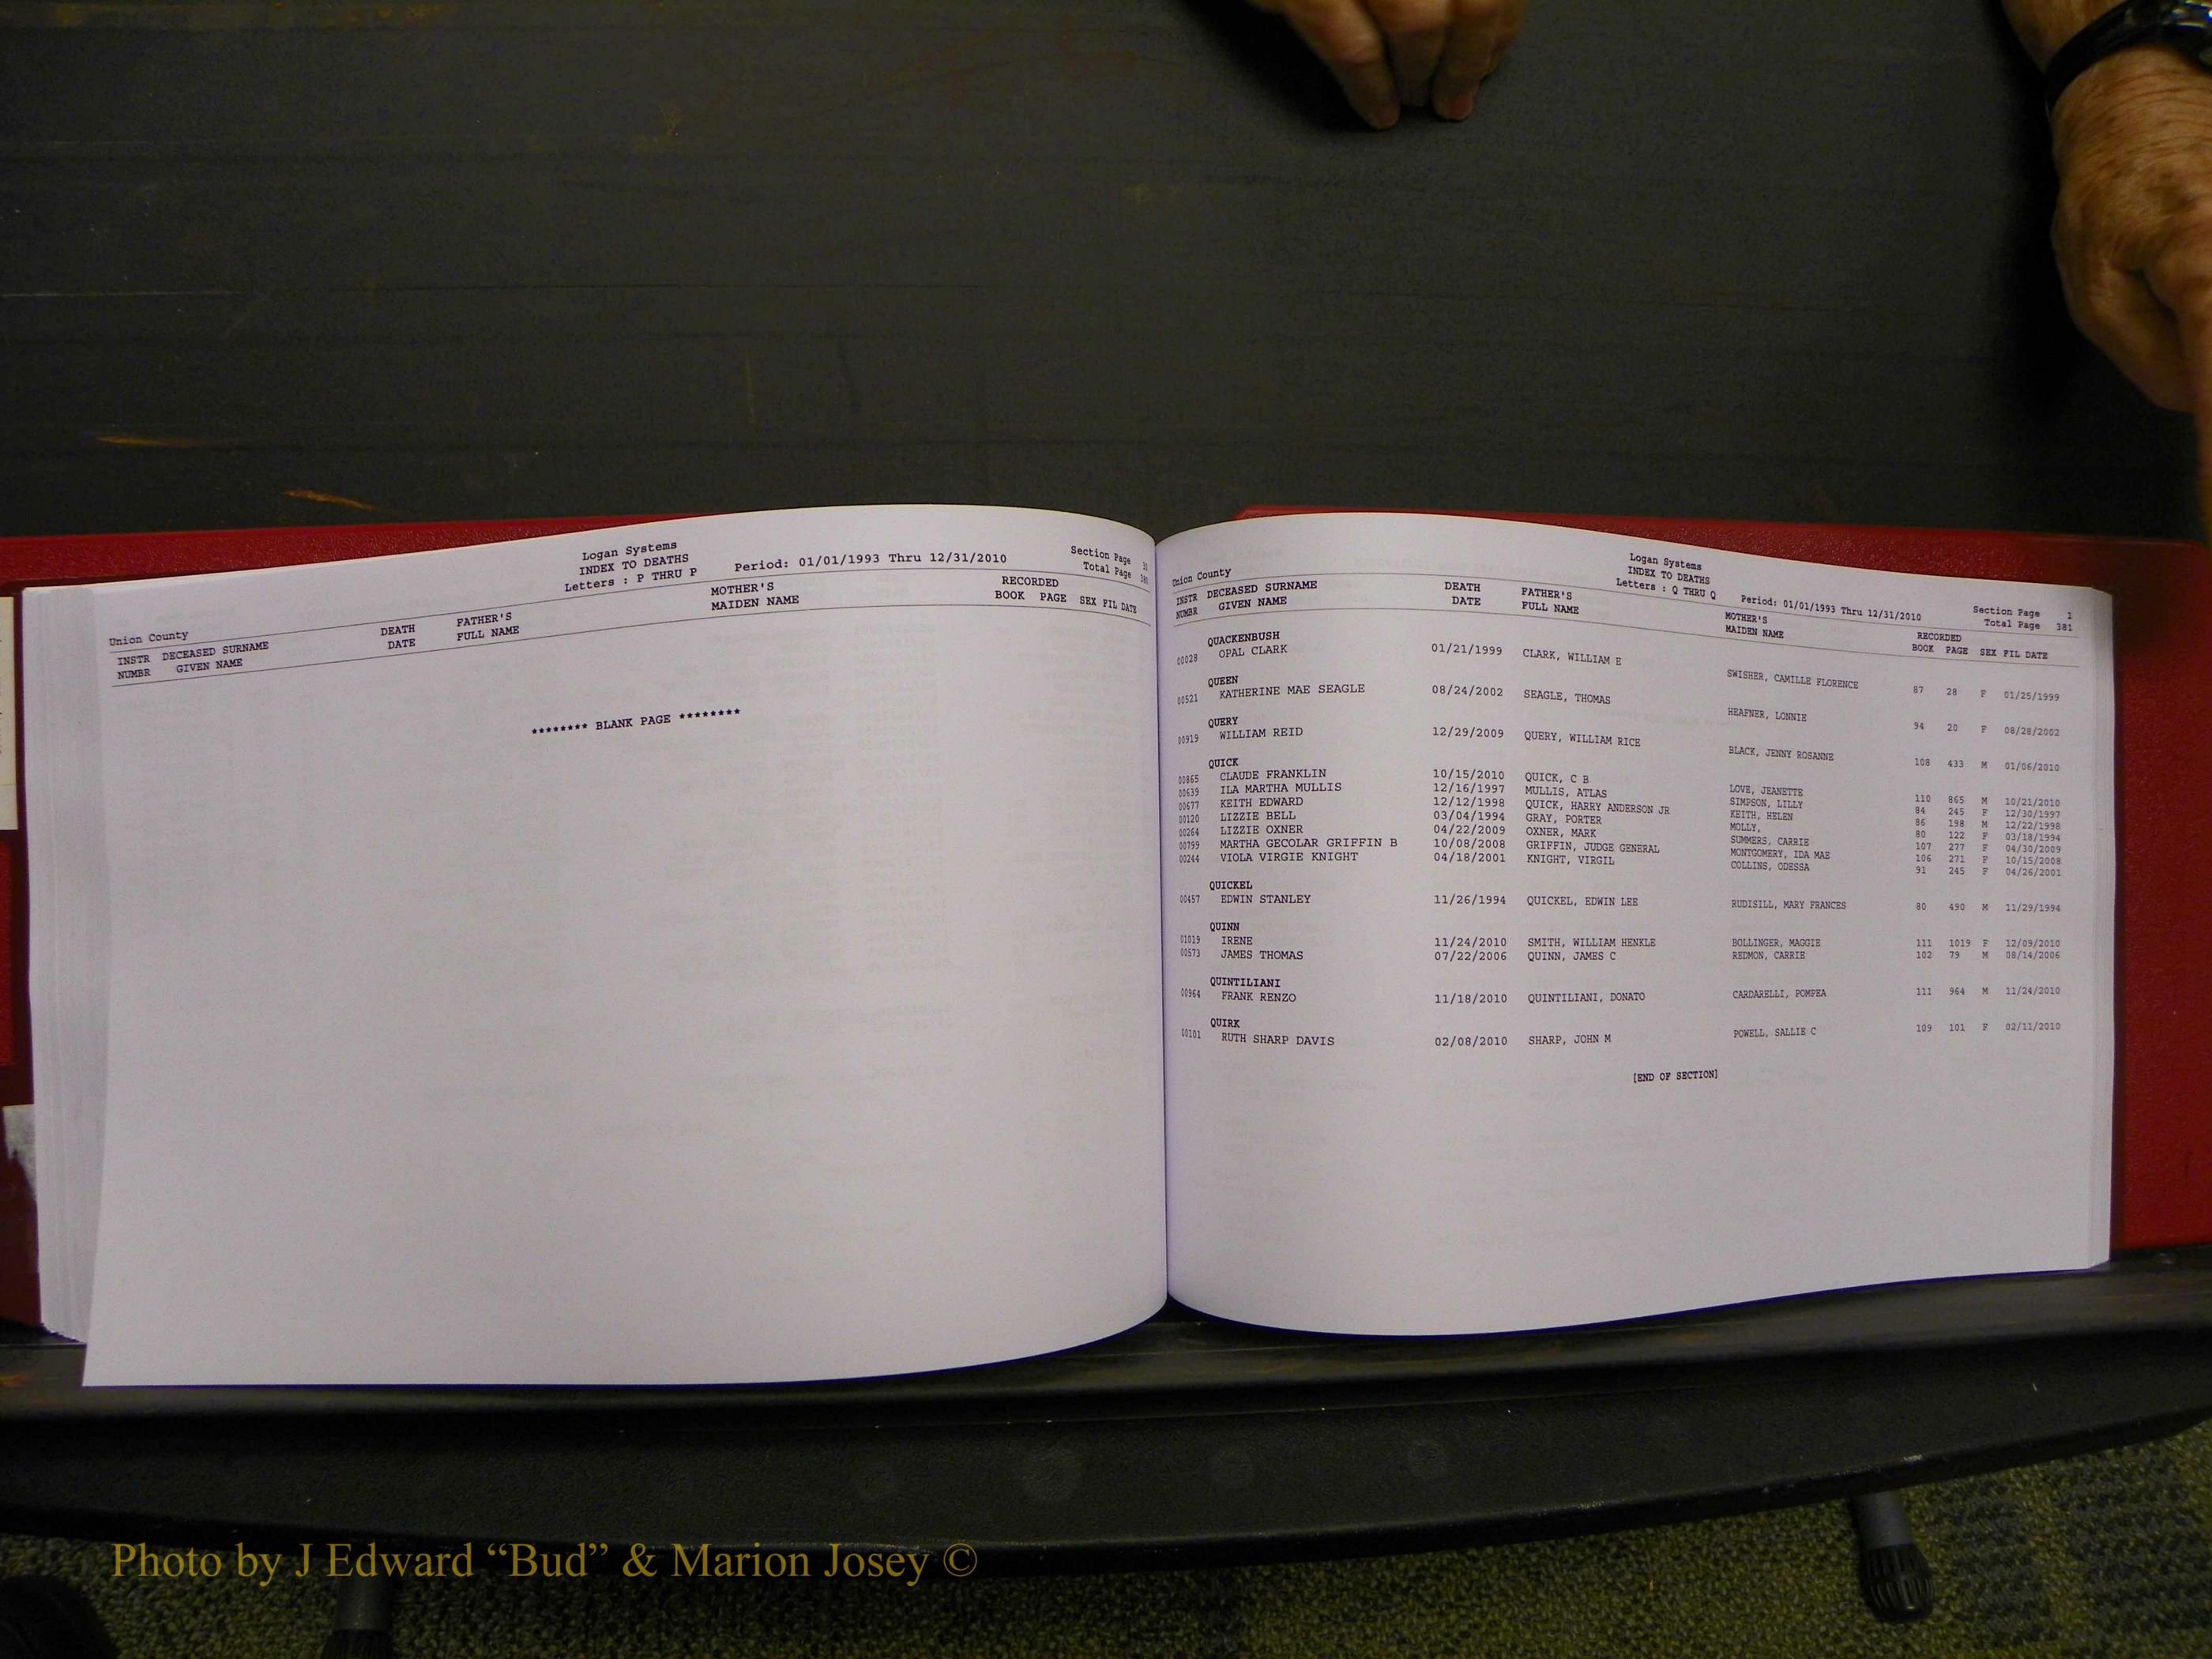 Logan Systems
INDEX TO DEATHS
Letters : P THRU P Period: 01/01/1993 Thru 12/31/2010 Section Page
Total Page
Union County
INSTR DECEASED SURNAME DEATH FATHER'S MOTHER'S RECORDED
NUMBR GIVEN NAME DATE FULL NAME MAIDEN NAME BOOK PAGE SEX FIL DATE
******** BLANK PAGE ********
Logan Systems
INDEX TO DEATHS
Letters : Q THRU Q Period: 01/01/1993 Thru 12/31/2010 Section Page 1
Total Page 381
Union County
INSTR DECEASED SURNAME DEATH FATHER'S MOTHER'S RECORDED
NUMBR GIVEN NAME DATE FULL NAME MAIDEN NAME BOOK PAGE SEX FIL DATE
QUACKENBUSH
00028 OPAL CLARK 01/21/1999 CLARK, WILLIAM E SWISHER, CAMILLE FLORENCE 87 28 F 01/25/1999
QUEEN
00521 KATHERINE MAE SEAGLE 08/24/2002 SEAGLE, THOMAS HEAFNER, LONNIE 94 20 F 08/28/2002
QUERY
00919 WILLIAM REID 12/29/2009 QUERY, WILLIAM RICE BLACK, JENNY ROSANNE 108 433 M 01/06/2010
QUICK
00865 CLAUDE FRANKLIN 10/15/2010 QUICK, C B LOVE, JEANETTE 110 865 M 10/21/2010
00639 ILA MARTHA MULLIS 12/16/1997 MULLIS, ATLAS SIMPSON, LILLY 84 245 F 12/30/1997
00677 KEITH EDWARD 12/12/1998 QUICK, HARRY ANDERSON JR KEITH, HELEN 86 198 M 12/22/1998
00120 LIZZIE BELL 03/04/1994 GRAY, PORTER MOLLY, 80 122 F 03/18/1994
00264 LIZZIE OXNER 04/22/2009 OXNER, MARK SUMMERS, CARRIE 107 277 F 04/30/2009
00799 MARTHA GECOLAR GRIFFIN B 10/08/2008 GRIFFIN, JUDGE GENERAL MONTGOMERY, IDA MAE 106 271 F 10/15/2008
00244 VIOLA VIRGIE KNIGHT 04/18/2001 KNIGHT, VIRGIL COLLINS, ODESSA 91 245 F 04/26/2001
QUICKEL
00457 EDWIN STANLEY 11/26/1994 QUICKEL, EDWIN LEE RUDISILL, MARY FRANCES 80 490 M 11/29/1994
QUINN
01019 IRENE 11/24/2010 SMITH, WILLIAM HENKLE BOLLINGER, MAGGIE 111 1019 F 12/09/2010
00573 JAMES THOMAS 07/22/2006 QUINN, JAMES C REDMON, CARRIE 102 79 M 08/14/2006
QUINTILIANI
00964 FRANK RENZO 11/18/2010 QUINTILIANI, DONATO CARDARELLI, POMPEA 111 964 M 11/24/2010
QUIRK
00101 RUTH SHARP DAVIS 02/08/2010 SHARP, JOHN M POWELL, SALLIE C 109 101 F 02/11/2010
[END OF SECTION]
Photo by J Edward “Bud” & Marion Josey ©